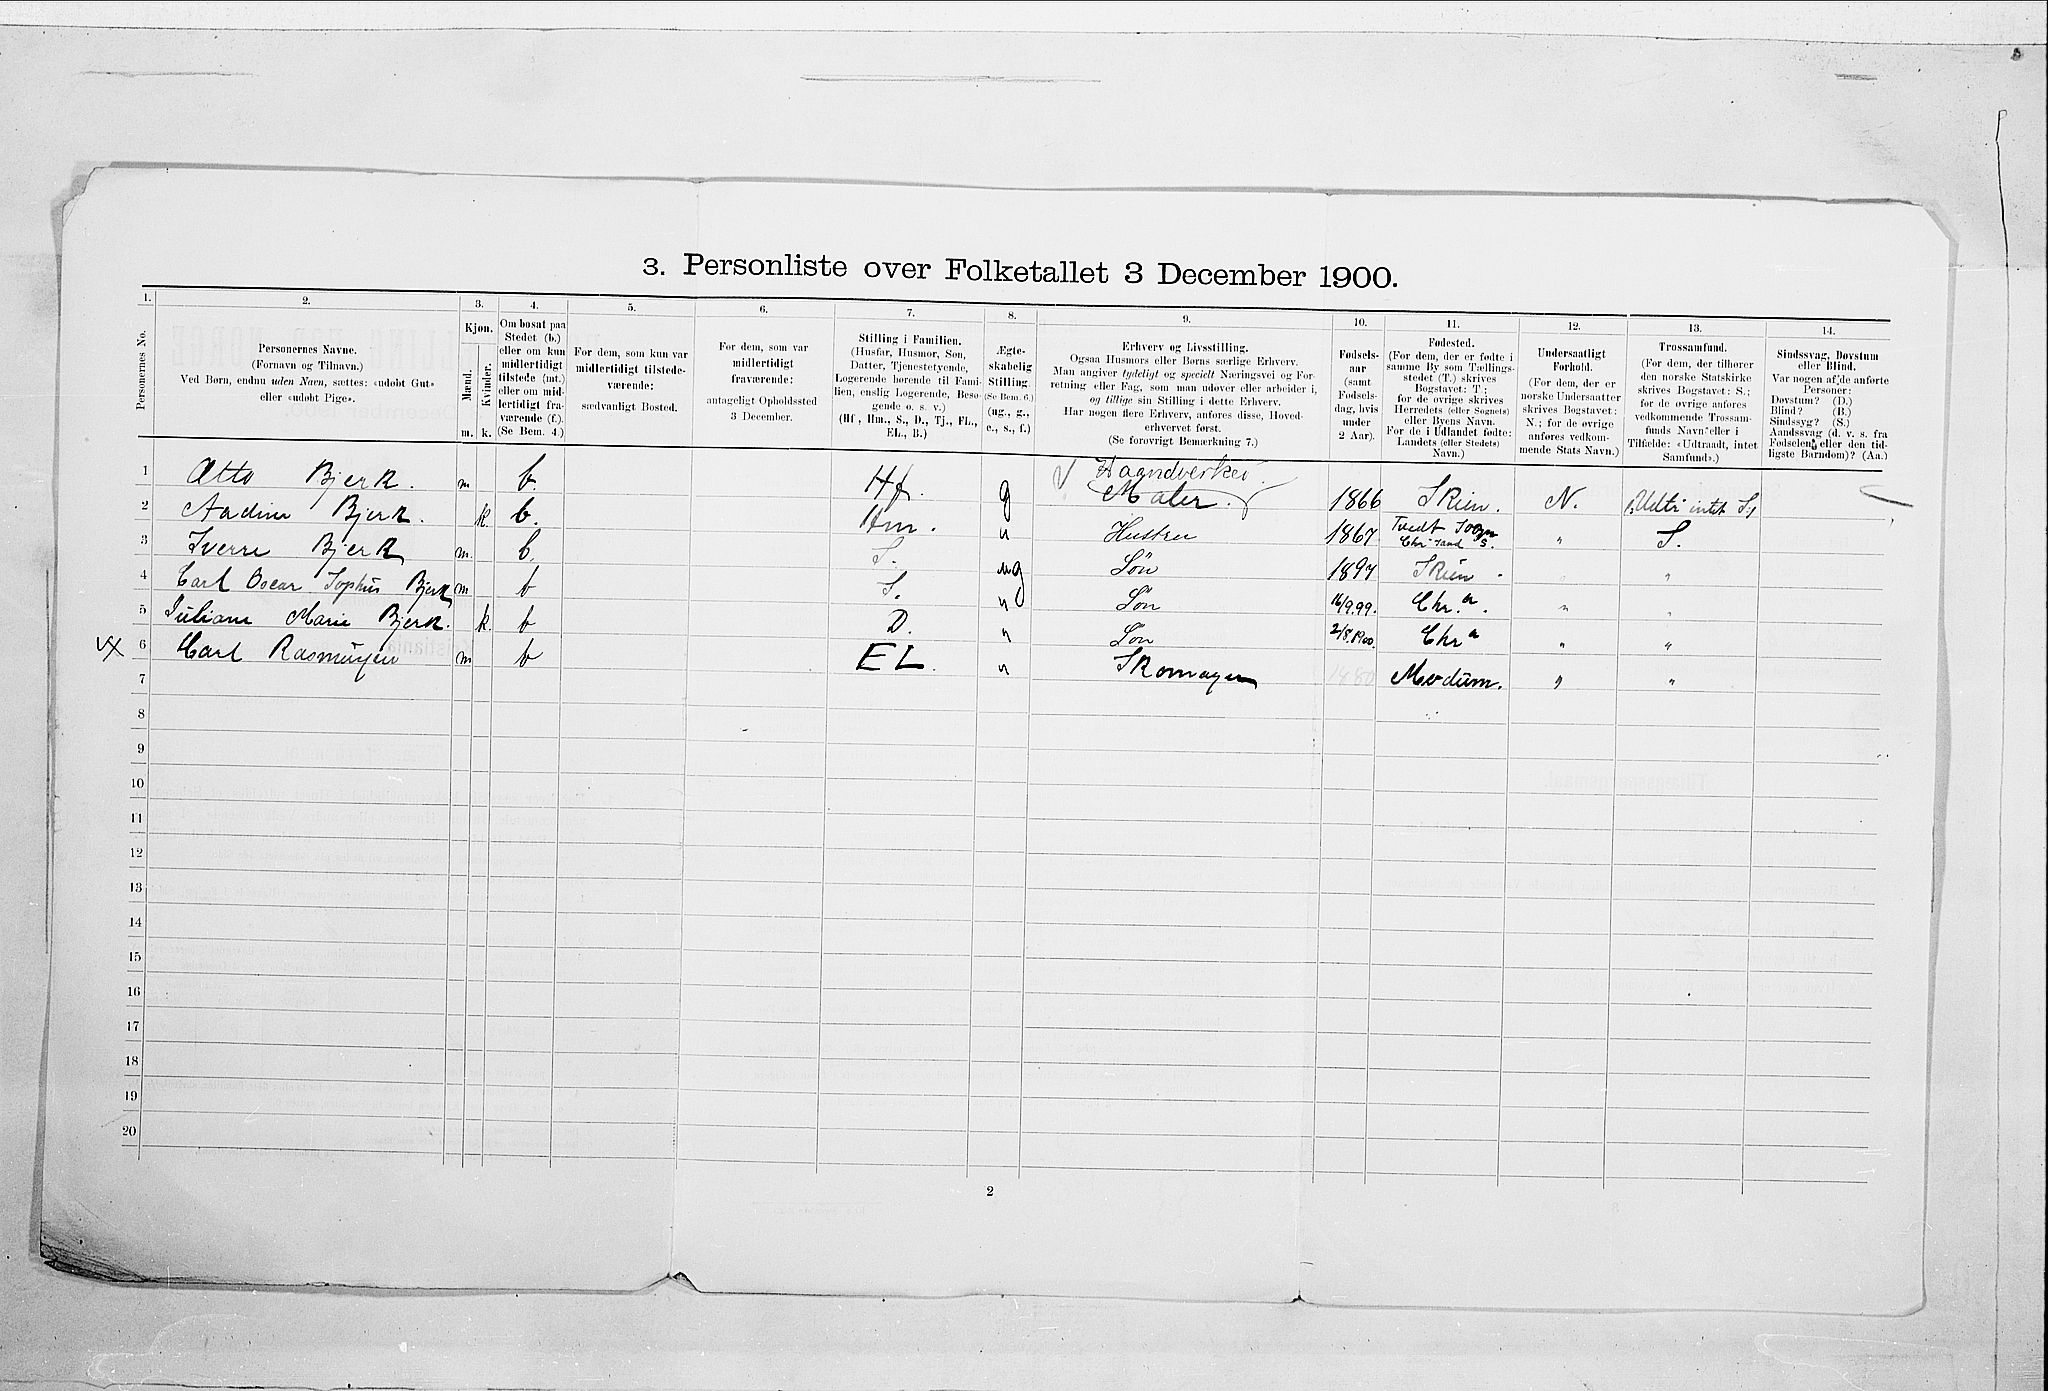 3. Personliste over Folketallet 3 December 1900.
1. 2. 3. 4. 5. 6. 7. 8. 9. 10. 11. 12. 13. 14.
Personernes No.
Personernes Navne.
(Fornavn og Tilnavn.)
Ved Børn, endnu uden Navn, sættes: «udøbt Gut»
eller «udøbt Pige».
Kjøn.
Mænd.
Kvinder.
m. k.
Om bosat paa
Stedet (b.)
eller om kun
midlertidigt
tilstede (mt.)
eller om mid-
lertidigt fra-
værende (f.).
(Se Bem. 4.)
For dem, som kun var
midlertidigt tilstede-
værende:
sædvanligt Bosted.
For dem, som var
midlertidigt
fraværende:
antageligt Opholdssted
3 December.
Stilling i Familien.
(Husfar, Husmor, Søn,
Datter, Tjenestetyende,
Logerende hørende til Fami-
lien, enslig Logerende, Besø-
gende o. s. v.)
(Hf, Hm., S., D., Tj., FL.,
EL., B.)
Ægte-
skabelig
Stilling.
(Se Bem. 6.)
(ug., g.,
e., s., f.)
Erhverv og Livsstilling.
Ogsaa Husmors eller Børns særlige Erhverv.
Man angiver tydeligt og specielt Næringsvei og For-
retning eller Fag, som man udøver eller arbeider i,
og tillige sin Stilling i dette Erhverv.
Har nogen flere Erhverv, anføres disse, Hoved-
erhvervet først.
(Se forøvrigt Bemærkning 7.)
Fødsels-
aar
(samt
Fødsels-
dag, hvis
under
2 Aar).
Fødested.
(For dem, der er fødte i
samme By som Tællings-
stedet (T.) skrives
Bogstavet: T.;
for de øvrige skrives
Herredets (eller Sognets)
eller Byens Navn.
For de i Udlandet fødte:
Landets (eller Stedets)
Navn.)
Undersaatligt
Forhold.
(For dem, der er
norske Undersaatter
skrives Bogstavet:
N.; for de øvrige
anføres vedkom-
mende Stats Navn.)
Trossamfund.
(For dem, der tilhører
den norske Statskirke
skrives Bogstavet: S.;
for de øvrige anføres
vedkommende Trossam-
funds Navn eller i
Tilfælde: «Udtraadt, intet
Samfund».)
Sindssvag, Døvstum
eller Blind.
Var nogen af de anførte
Personer:
Døvstum? (D.)
Blind? (B.)
Sindssyg? (S.)
Aandssvag (d. v. s. fra
Fødselen eller den tid-
ligste Barndom)? (Aa.)
1 Otto Bjerk. m b. Hf. g Haandverker. Maler. 1866 Skien. N. Udtr intet S.
2 Aadine Bjerk. k. b. Hm. " Hustru 1867 Tvedt Sogn Chr sand S. " S.
3 Sverre Bjerk m. b. S. ug Søn 1897 Skien " "
4 Carl Oscar Sophus Bjerk m b S. " Søn 16/9.99. Chr.a. " "
5 Juliane Marie Bjerk. k. b D. " Søn 2/8.1900. Chr a " "
6 Carl Rasmusen m b EL. " Skomager 1880 Modum. " "
7
8
9
10
11
12
13
14
15
16
17
18
19
20
2